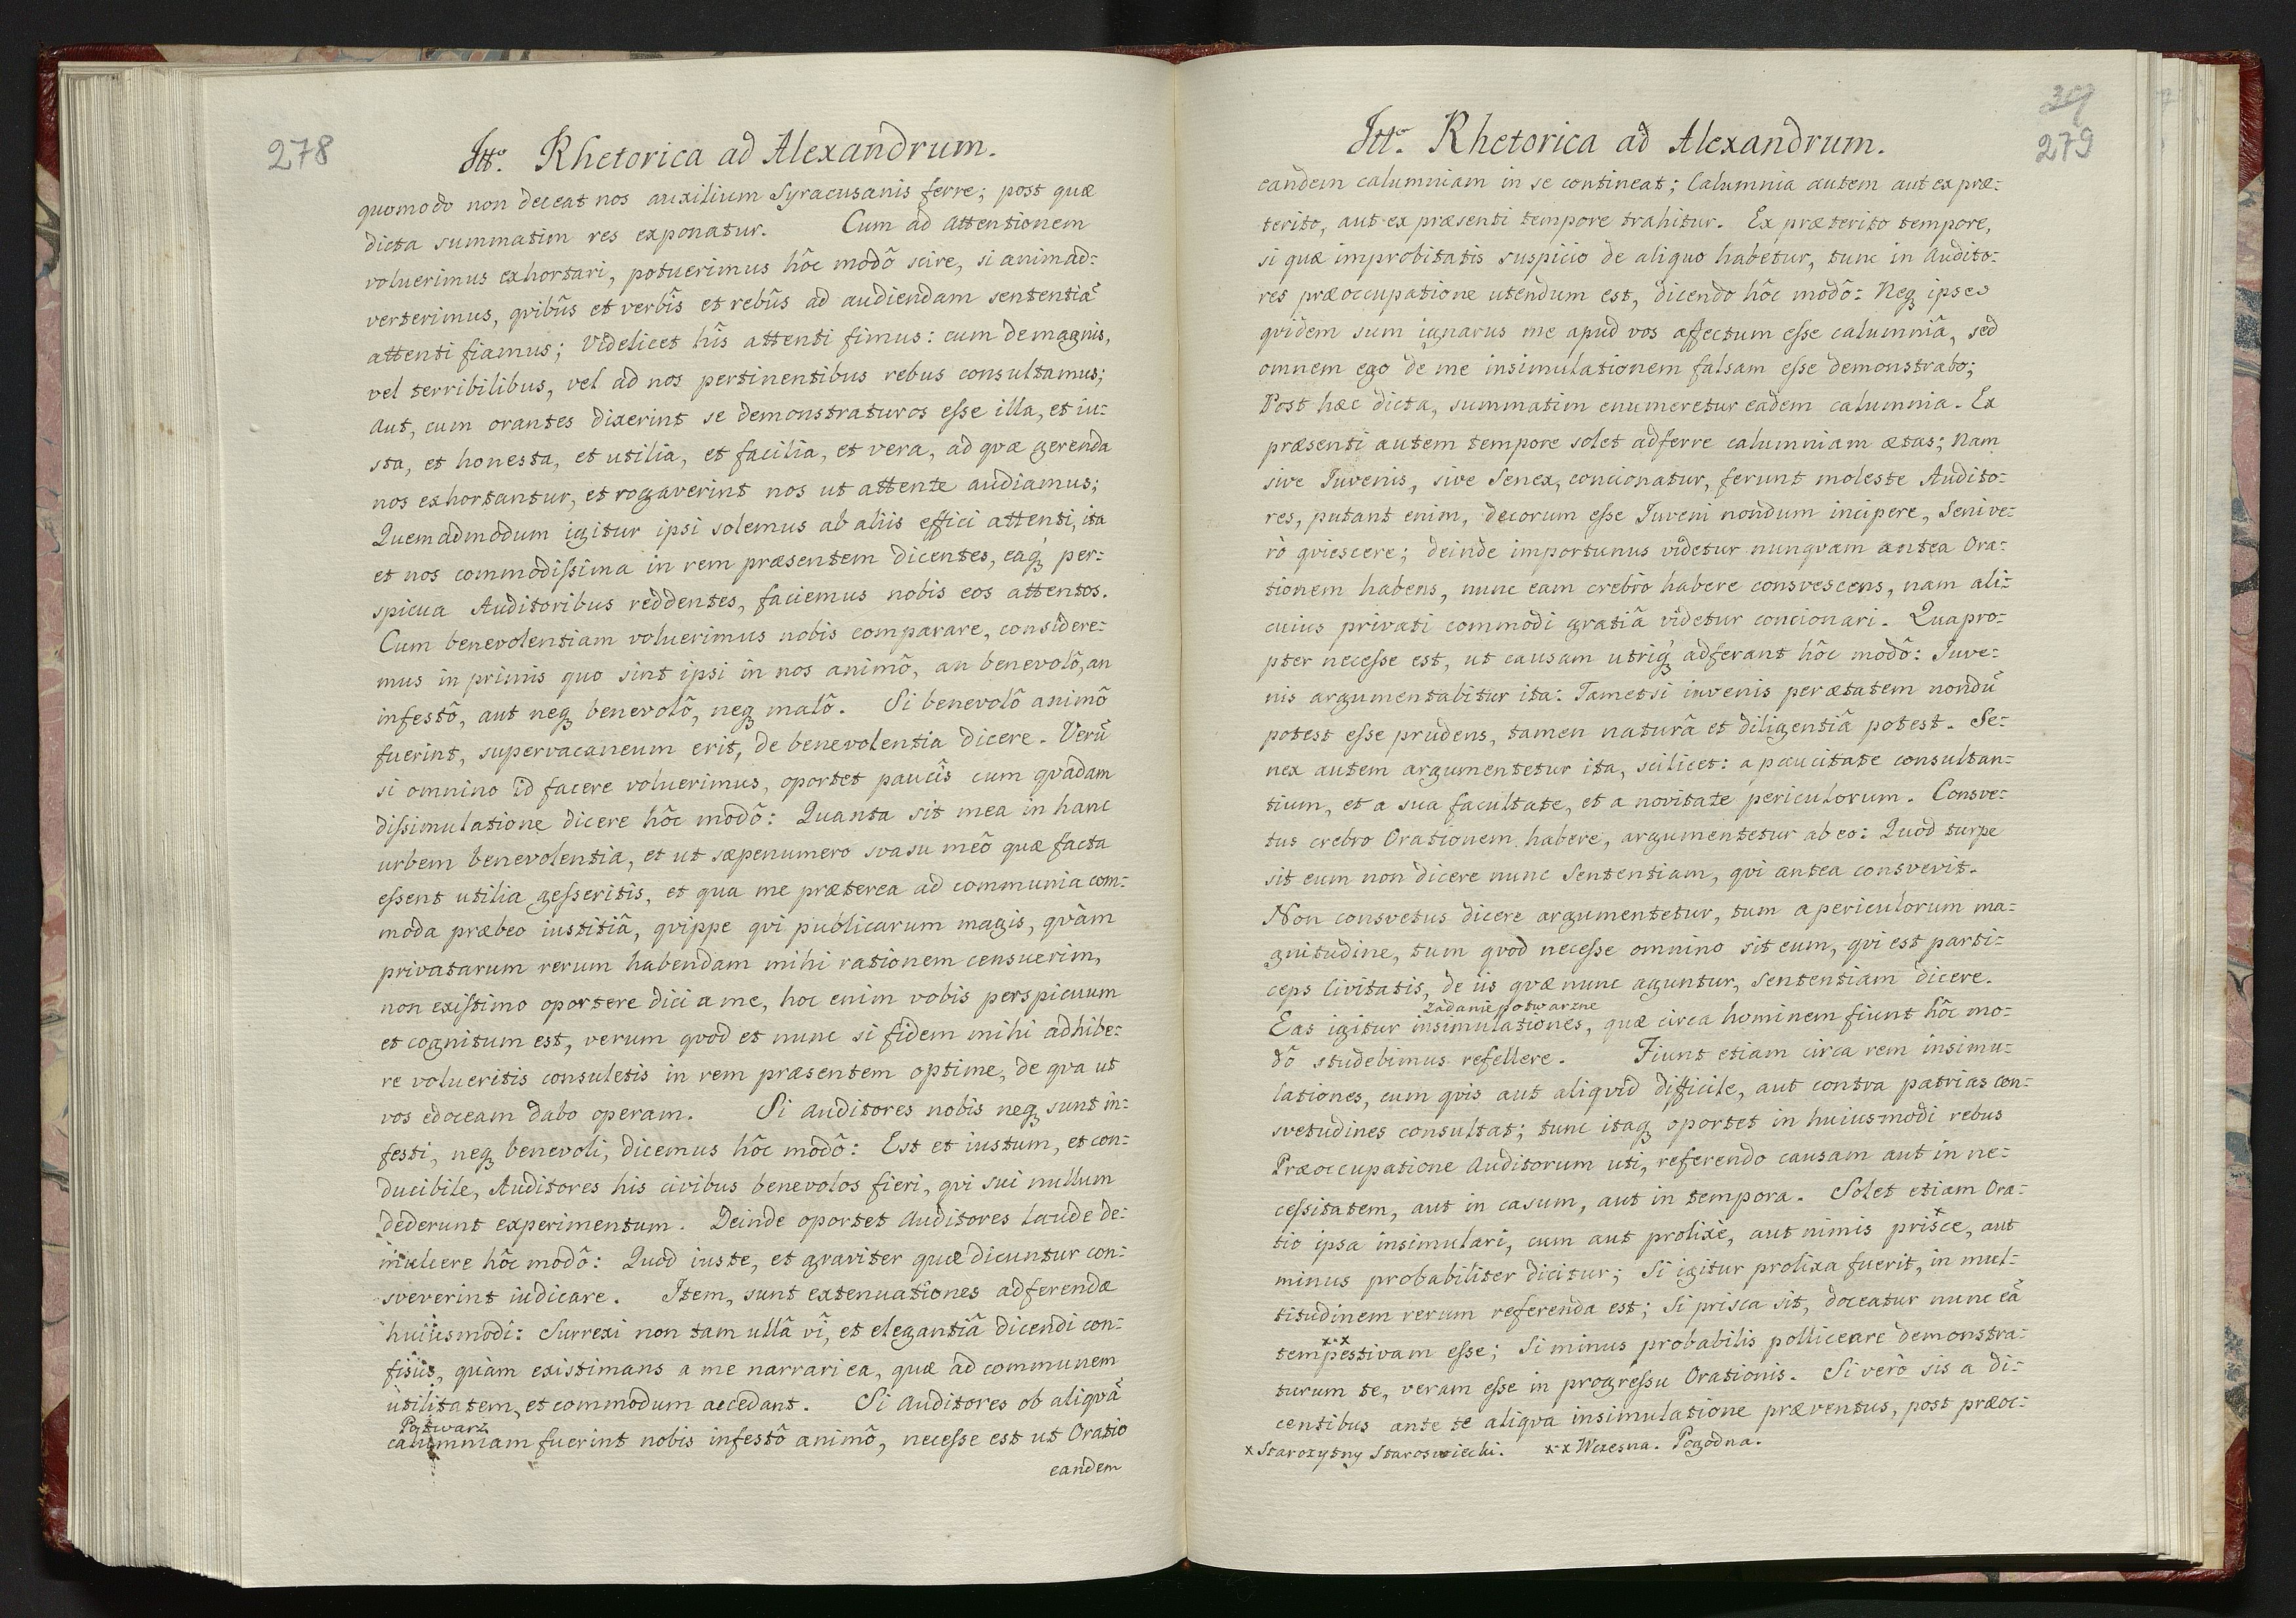 278
Itto. Rhetorica ad Alexandrum.
quomodo non deceat nos auxilium Syracusanis ferre; post quæ
dicta summatim res exponatur. Cum ad attentionem
voluerimus exhortari, potuerimus hôc modô scire, si animad:
verterimus, qvibûs et verbîs et rebûs ad audiendam sententiã
attenti fiamus; Videlicet hîs attenti fimus: cum de magnis,
vel terribilibus, vel ad nos pertinentibus rebus consultamus;
Aut, cum orantes dixerint se demonstraturos eſse illa, et iu:
sta, et honesta, et utilia, et facilia, et vera, ad qvæ gerenda
nos exhortantur, et rogaverint nos ut attente audiamus;
Quemadmodum igitur ipsi solemus ab aliis effici attenti, ita
et nos commodiſsima in rem præsentem dicentes, eaqꝫ per:
spicua Auditoribus reddentes, faciemus nobis eos attentos.
Cum benevolentiam voluerimus nobis comparare, considere:
mus in primis quo sint ipsi in nos animô, an benevolô, an
infestô, aut neqꝫ benevolô, neqꝫ malô. Si benevolô animô
fuerint, supervacaneum erit, de benevolentia dicere. Verũ
si omnino id facere voluerimus, oportet paucîs cum qvadam
diſsimulatione dicere hôc modô: Quanta sit mea in hanc
urbem benevolentia, et ut sæpenumero svasu meô quæ facta
eſsent utilia geſseritis, et qua me præterea ad communia com:
moda præbeo iustitiâ, qvippe qvi publicarum magis, qvàm
privatarum rerum habendam mihi rationem censuerim,
non exiſtimo oportere dici a me, hoc enim vobis perspicuum
et cognitum est, verum qvod et nunc si fidem mihi adhibe:
re volueritis consuletis in rem præsentem optime, de qva ut
vos edoceam dabo operam. Si Auditores nobis neqꝫ sunt in:
festi, neqꝫ benevoli, dicemus hôc modô: Est et iustum, et con:
ducibile, Auditores his civibus benevolos fieri, qvi sui nullum
dederunt experimentum. Deinde oportet Auditores laude de:
mulcere hôc modô: Quod iuste, et graviter quæ dicuntur con:
sveverint iudicare. Item, sunt extenuationes adferendæ
huiusmodi: Surrexi non tam ullâ vî, et elegantiâ dicendi con:
fisus, quàm existimans a me narrari ea, quæ ad communem
utilitatem, et commodum accedant. Si Auditores ob aliqvã
Potwarz
calumniam fuerint nobis infestô animô, neceſse est ut Oratio
eandem
279
Itto. Rhetorica ad Alexandrum.
eandem calumniam in se contineat; Calumnia autem aut ex præ:
terito, aut ex præsenti tempore trahitur. Ex præterito tempore,
si quæ improbitatis suspicio de aliquo habetur, tunc in Audito:
res præoccupatione utendum est, dicendo hôc modô: Neqꝫ ipse
qvidem sum ignarus me apud vos affectum eſse calumniâ, sed
omnem ego de me insimulationem falsam eſse demonstrabo;
Post hæc dicta, summatim enumeretur eadem calumnia. Ex
præsenti autem tempore solet adferre calumniam ætas; Nam
sive Iuvenis, sive Senex, concionatur, ferunt moleste Audito:
res, putant enim, decorum eſse Iuveni nondum incipere, Seni ve:
rò qviescere; deinde importunus videtur nunqvam antea Ora:
tionem habens, nunc eam crebrò habere consvescens, nam ali:
cuius privati commodi gratiâ videtur concionari. Quapro:
pter neceſse est, ut causam utriqꝫ adferant hôc modô: Iuve:
nis argumentabitur ita: Tametsi iuvenis per ætatem nondũ
potest eſse prudens, tamen naturâ et diligentiâ potest. Se:
nex autem argumentetur ita, scilicet: a paucitate consultan:
tium, et a sua facultate, et a novitate periculorum. Consve:
tus crebro Orationem habere, argumentetur ab eo: Quod turpe
sit eum non dicere nunc Sententiam, qvi antea consverit.
Non consvetus dicere argumentetur, tum a periculorum ma:
gnitudine, tum qvod neceſse omnino sit eum, qvi est parti:
ceps Civitatis, de iis qvæ nunc aguntur, sententiam dicere.
Zadanie potwarzne
Eas igitur insimulationes, quæ circa hominem fiunt hôc mo:
dô studebimus refellere. Fiunt etiam circa rem insimu:
lationes, cum qvis aut aliqvid difficile, aut contra patrias con:
svetudines consultat; tunc itaqꝫ oportet in huiusmodi rebus
Præoccupatione Auditorum uti, referendo causam aut in ne:
ceſsitatem, aut in casum, aut in tempora. Solet etiam Ora:
tio ipsa insimulari, cum aut prolixè, aut nimis prisce, aut
minus probabiliter dicitur; Si igitur prolixa fuerit, in mul:
titudinem rerum referenda est; Si prisca sit, doceatur nunc eã
x-x
tempestivam eſse; Si minus probabilis polliceare demonstra:
turum te, veram eſse in progreſsu Orationis. Si verò sis a di:
centibus ante te aliqva insimulatione præventus, post præoc:
x Starożytny Staroswiecki. x-x Wczesna. Pogodna.